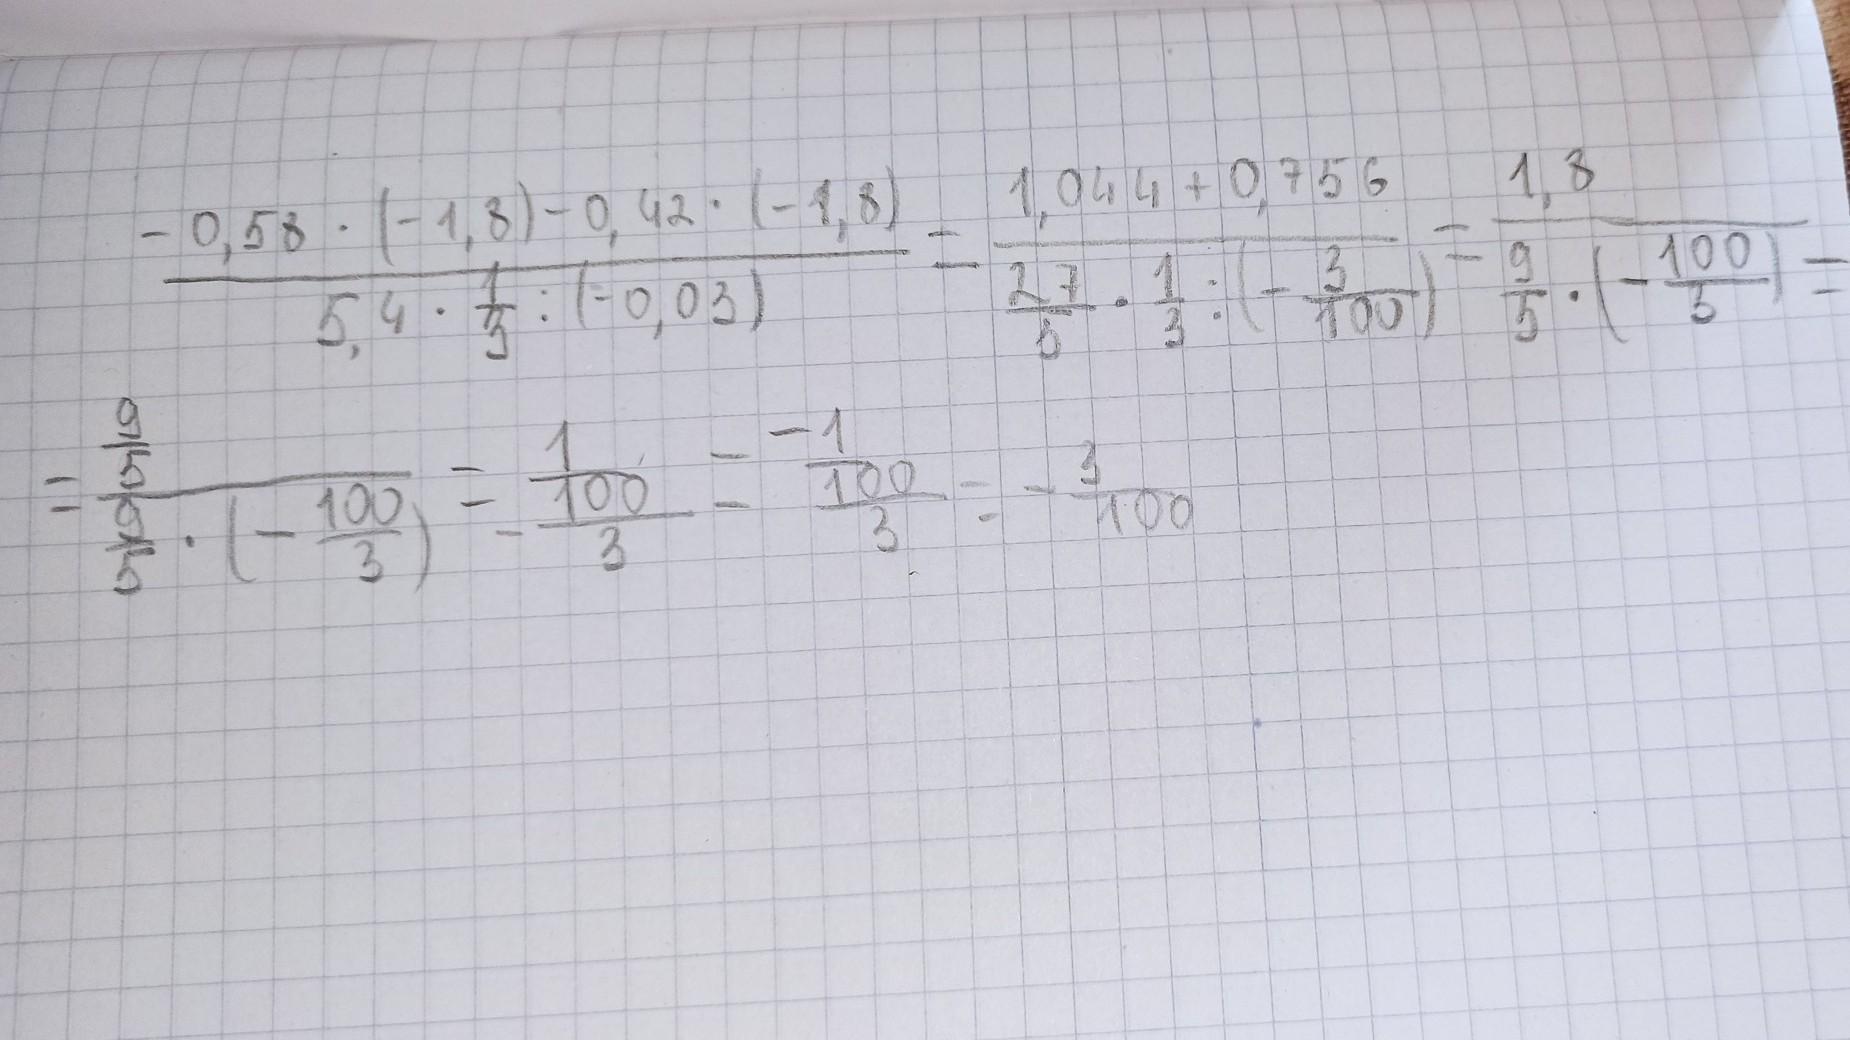 -0,58 · (-1,8) - 0,42 · (-1,8) / 5,4 · 1/3 : (-0,03) = 1,044 + 0,756 / 27/5 · 1/3 : (- 3/100) = 1,8 / 9/5 · (- 100/3) =
= 9/5 / 9/5 · (- 100/3) = 1 / - 100/3 = -1 / 100/3 = - 3/100